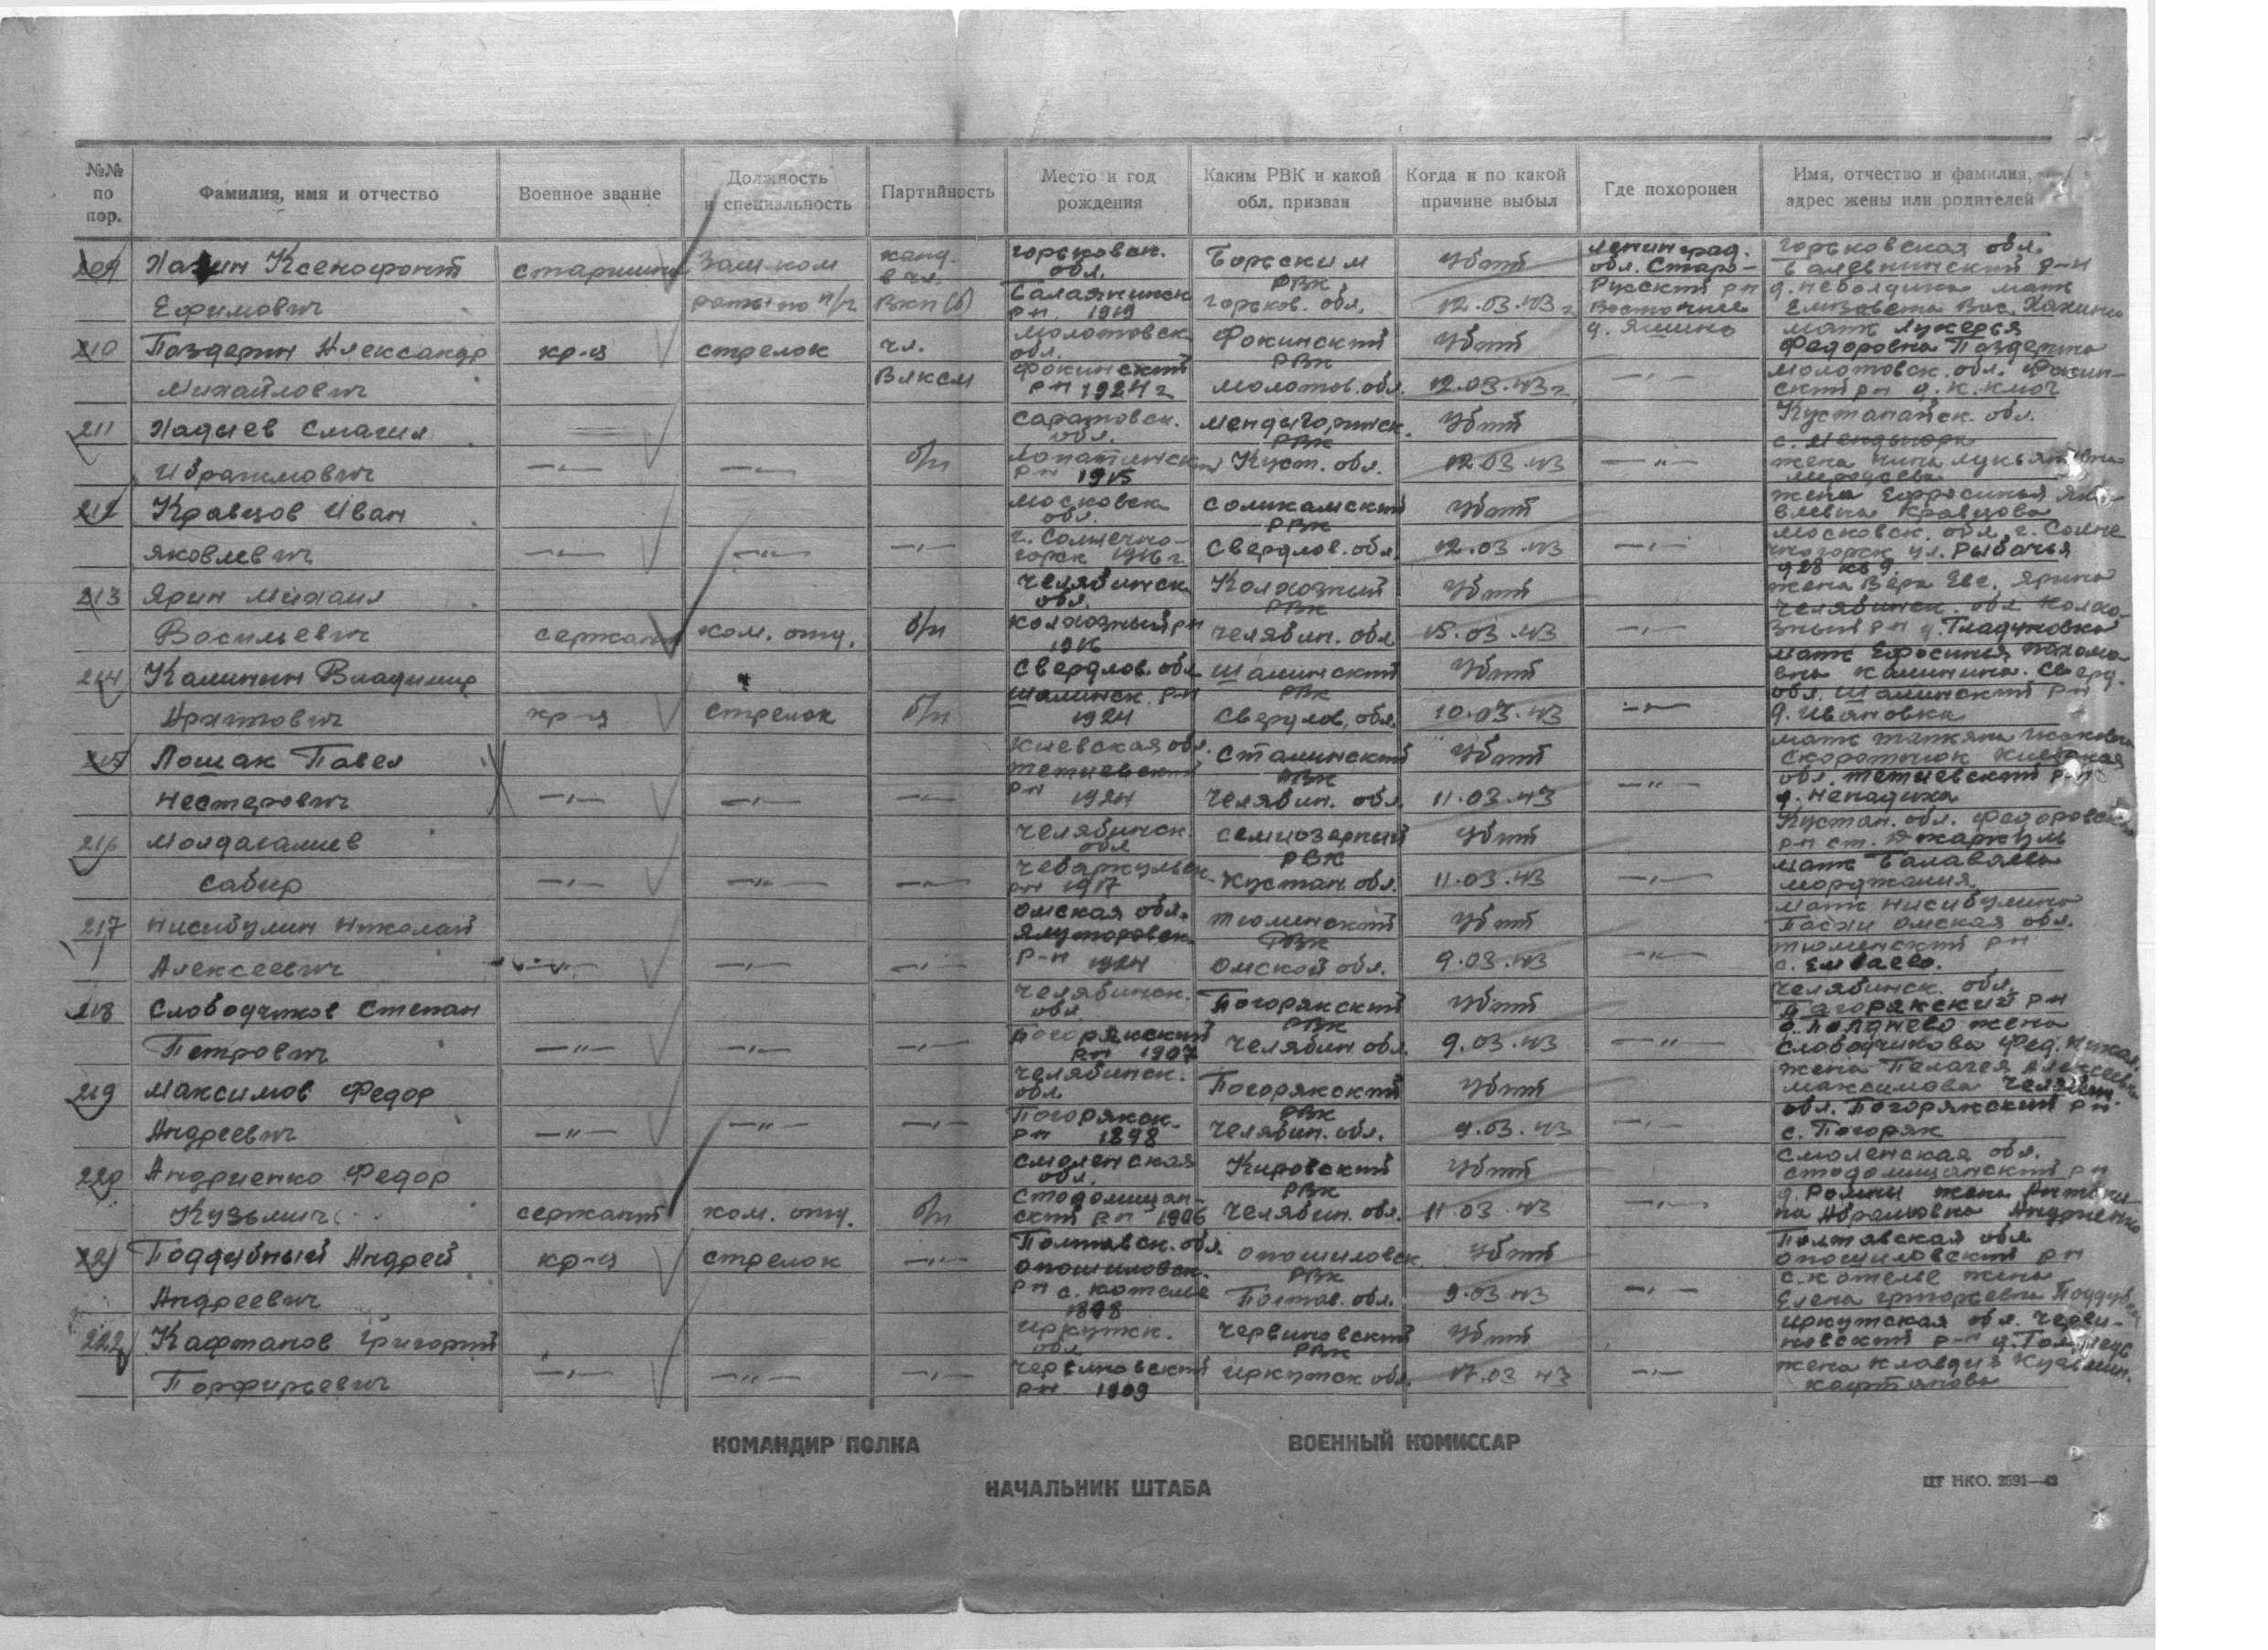 №№ по пор.
Фамилия, имя и отчество
Военное звание
Должность и специальность
Партийность
Место и год рождения
Каким РВК и какой обл. призван
Когда и по какой причине выбыл
Где похоронен
Имя, отчество и фамилия, адрес жены или родителей
209 Ксенофонт Ефимович старшина Зам ком роты по п/ч канд. в чл. ВКП(б) горьковск. обл. р-н 1919 Борским РВК, горьков. обл. Убит 12.03.43г Ленинград. обл. Старо-Русский рн д. горьковская обл. р-н мать Елизавета Вас.
210 Поздерин Александр Михайлович кр-ц стрелок чл. ВЛКСМ Молотовск обл. Фокинский рн 1924г Фокинский РВК Молотов. обл. Убит 12.03.43г —„— мать Лукерья Федоровна Поздерина Молотовск. обл. Фокинский рн д. К. Ключ
211 Хадыев Смагил Ибрагимович —„— —„— б/п Саратовск. обл. рн 1915 Мендыгоринск. РВК Куст. обл. Убит 12.03.43 —„— Кустанайск. обл. с. жена Нина
212 Кравцов Иван Яковлевич —„— —„— —„— Московск обл. г. Солнечногорск 1916г. Соликамский РВК Свердлов. обл. Убит 12.03.43 —„— жена Ефросинья Яковлевна Кравцова Московск. обл. г. Солнечногорск ул. Рыбачья д 28 кв 9.
213 Ярин Михаил Васильевич сержант ком. отд. б/п Челябинск обл. Колхозный рн 1916 Колхозный РВК Челябин. обл Убит 15.03.43 —„— жена Вера Евс. Ярина Челябинск. обл Колхозный рн д.
214 Калинин Владимир кр-ц стрелок б/п Свердлов. обл Шалинск. р-н 1924 Шалинский РВК Свердлов. обл. Убит 10.03.43 —„— мать Калинина. Сверд. обл. Шалинский рн д. Ивановка
215 Лошак Павел Нестерович —„— —„— —„— Киевская обл. Тетиевский рн 1924 Сталинский РВК Челябин. обл. Убит 11.03.43 —„— мать Татьяна Скоротюк Киевская обл. Тетиевский р-н
216 Молдагалиев Сабир —„— —„— —„— Челябинск. обл Чебаркульск рн 1917 Семиозерный РВК Кустан. обл. Убит 11.03.43 —„— Кустан. обл. Федоровский рн ст. Джаркуль мать
217 Нисибулин Николай Алексеевич —„— —„— —„— Омская обл. Ялуторовск. р-н 1924 Тюменский РВК Омской обл. Убит 9.03.43 —„— мать Нисибулина Омская обл. Тюменский рн с. Ембаево.
218 Слободчиков Степан Петрович —„— —„— —„— Челябинск. обл Погорякский рн 1907 Погорякский РВК Челябин. обл. Убит 9.03.43 —„— Челябинск. обл, Погорякский рн жена Слободчикова Фед.
219 Максимов Федор Андреевич —„— —„— —„— Челябинск. обл Погорякск. рн 1898 Погорякский РВК Челябин. обл. Убит 9.03.43 —„— жена Пелагея Алексеевна Максимова Челябин. обл. Погорякский рн. с. Погоряк
220 Андриенко Федор Кузьмич сержант ком. отд. б/п Смоленская обл. Стодолищанский рн 1906 Кировский РВК Челябин. обл. Убит 11.03.43 —„— Смоленская обл. Стодолищанский рн жена Абрамовна Андриенко
221 Поддубный Андрей Андреевич кр-ц стрелок —„— Полтавск. обл. Опошиловск. рн с. Котелье 1898 Опошиловск РВК Полтав. обл. Убит 9.03.43 —„— Полтавская обл Опошиловский рн с. Котелье жена Елена Григорьевна
222 Кафтанов Григорий Порфирьевич —„— —„— —„— Иркутск. обл Червиновский рн. 1909 Червиновский РВК Иркутск обл. Убит 17.03.43 —„— Иркутская обл. Червиновский р-н жена Клавдия Кузьмин. Кафтанова
КОМАНДИР ПОЛКА
ВОЕННЫЙ КОМИССАР
НАЧАЛЬНИК ШТАБА